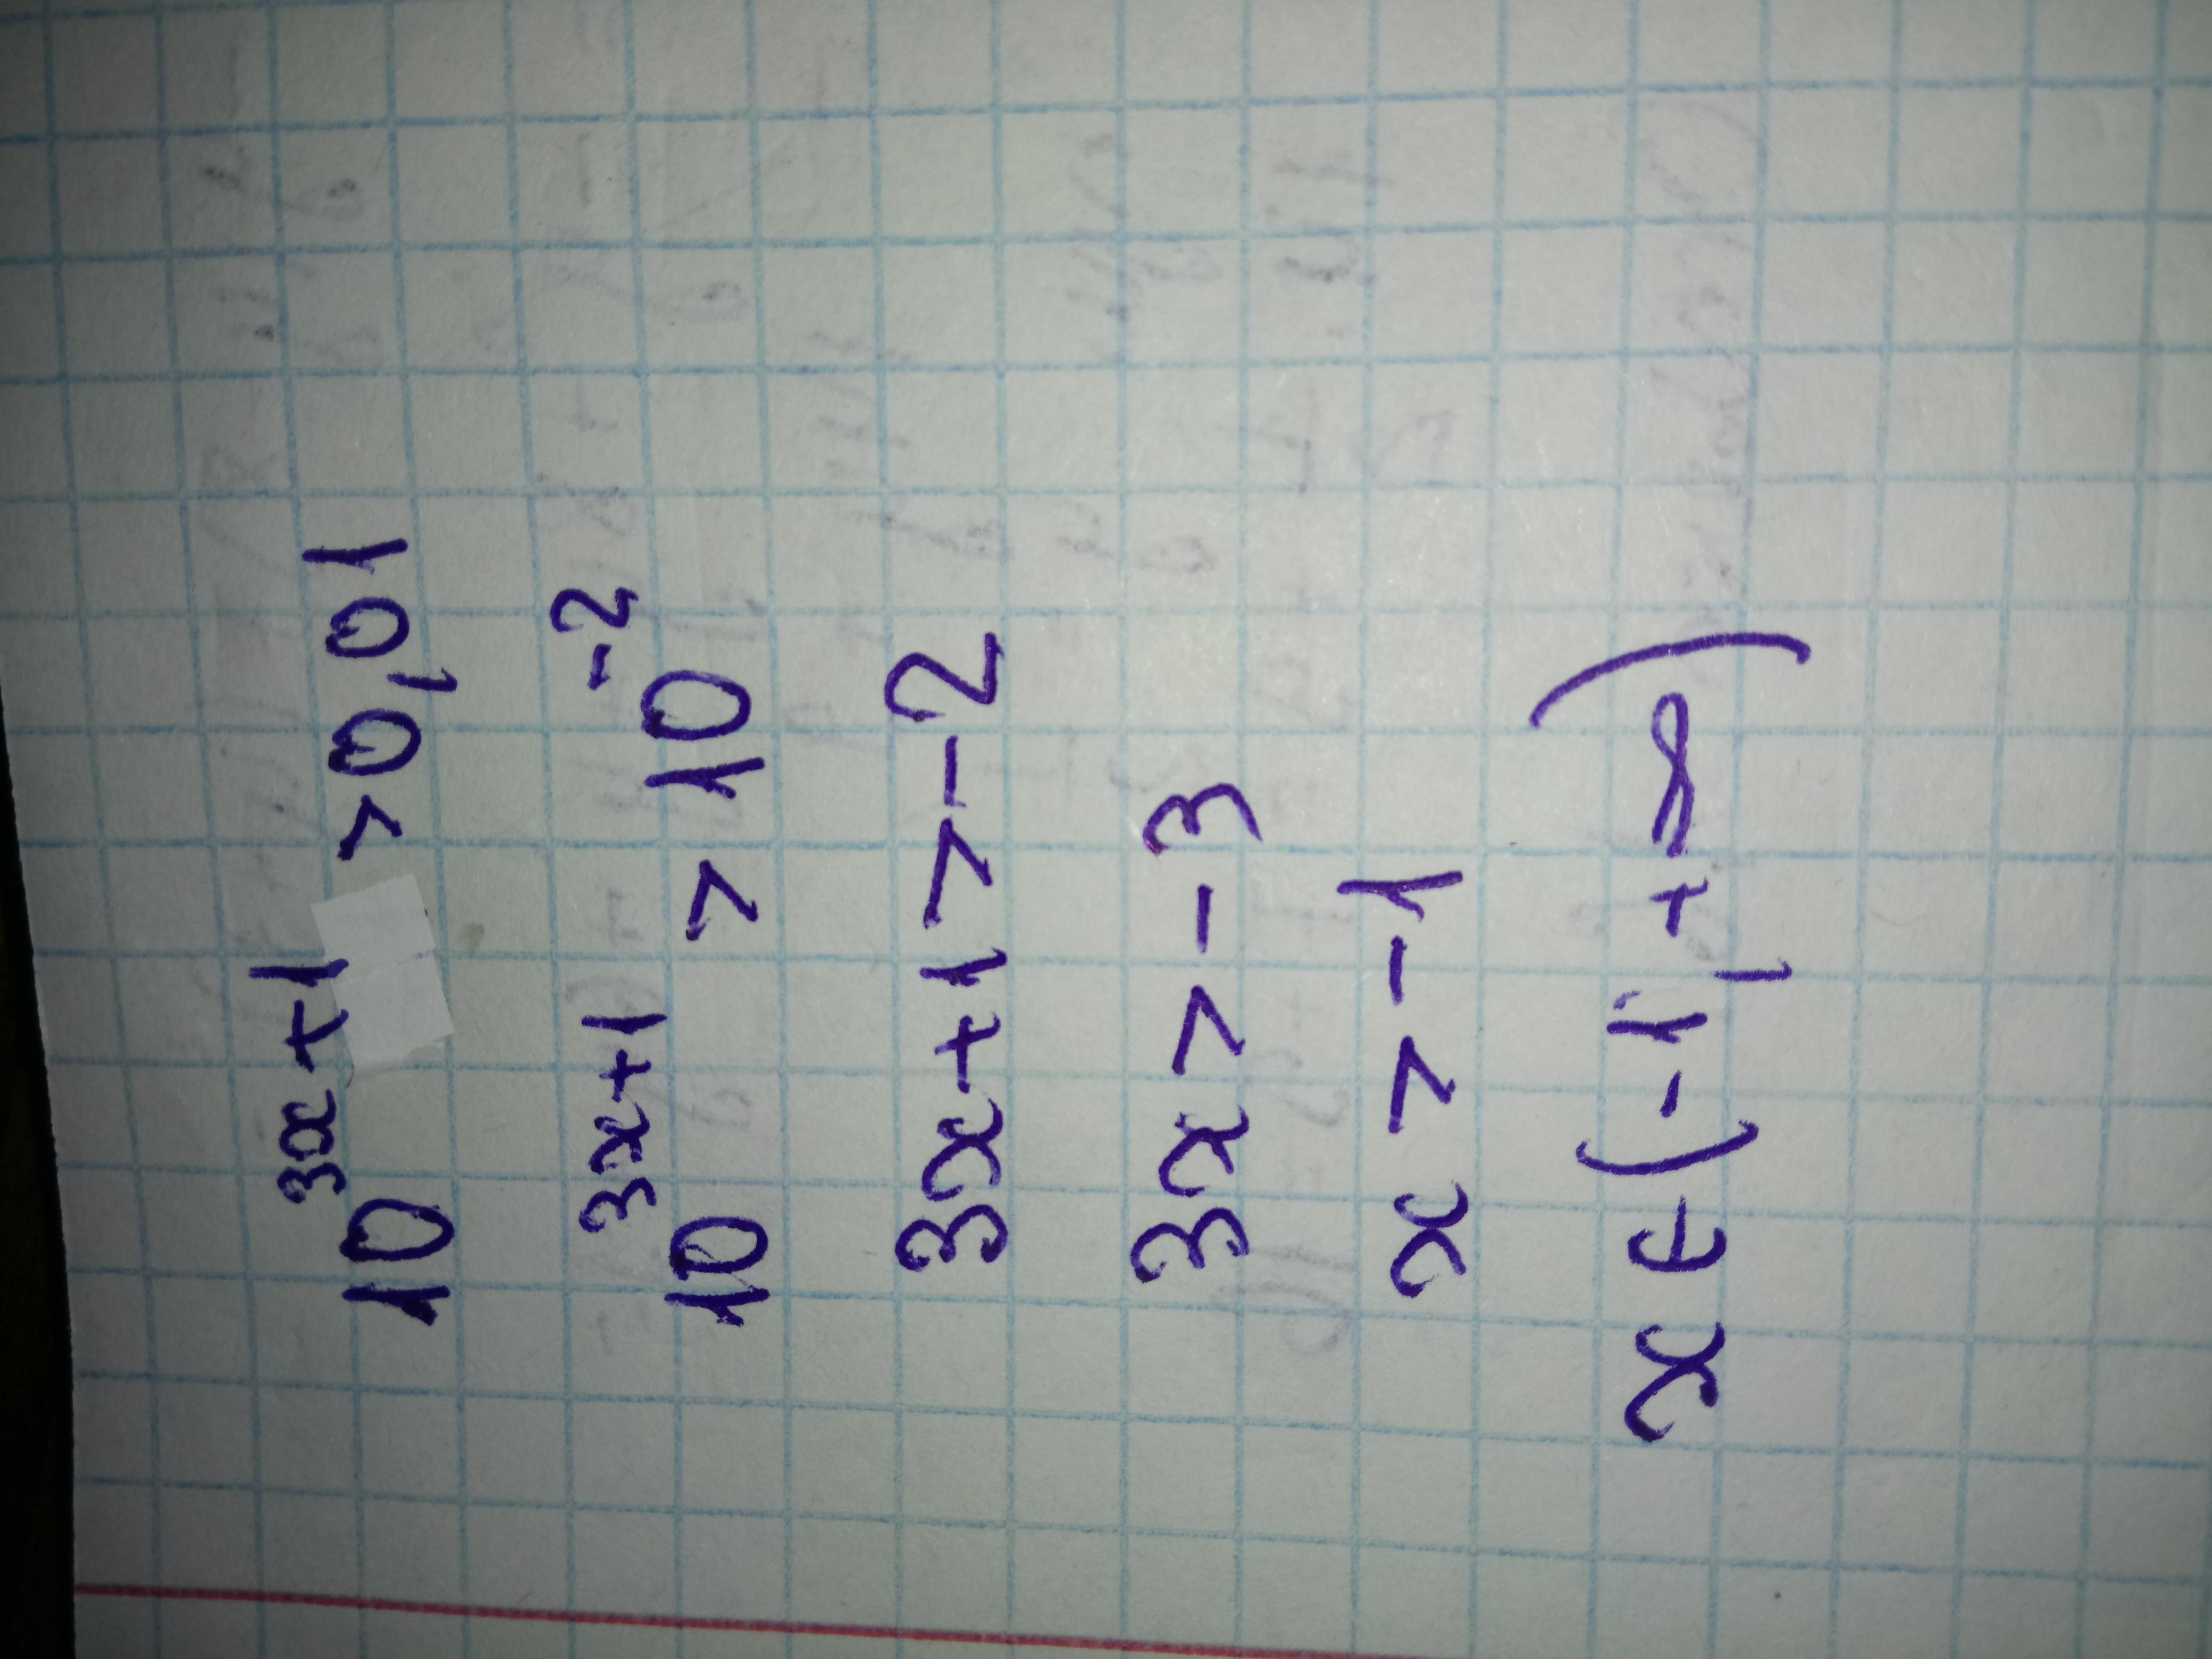 10^{3x+1} > 0,01
10^{3x+1} > 10^{-2}
3x+1 > -2
3x > -3
x > -1
x ∈ (-1, +∞)